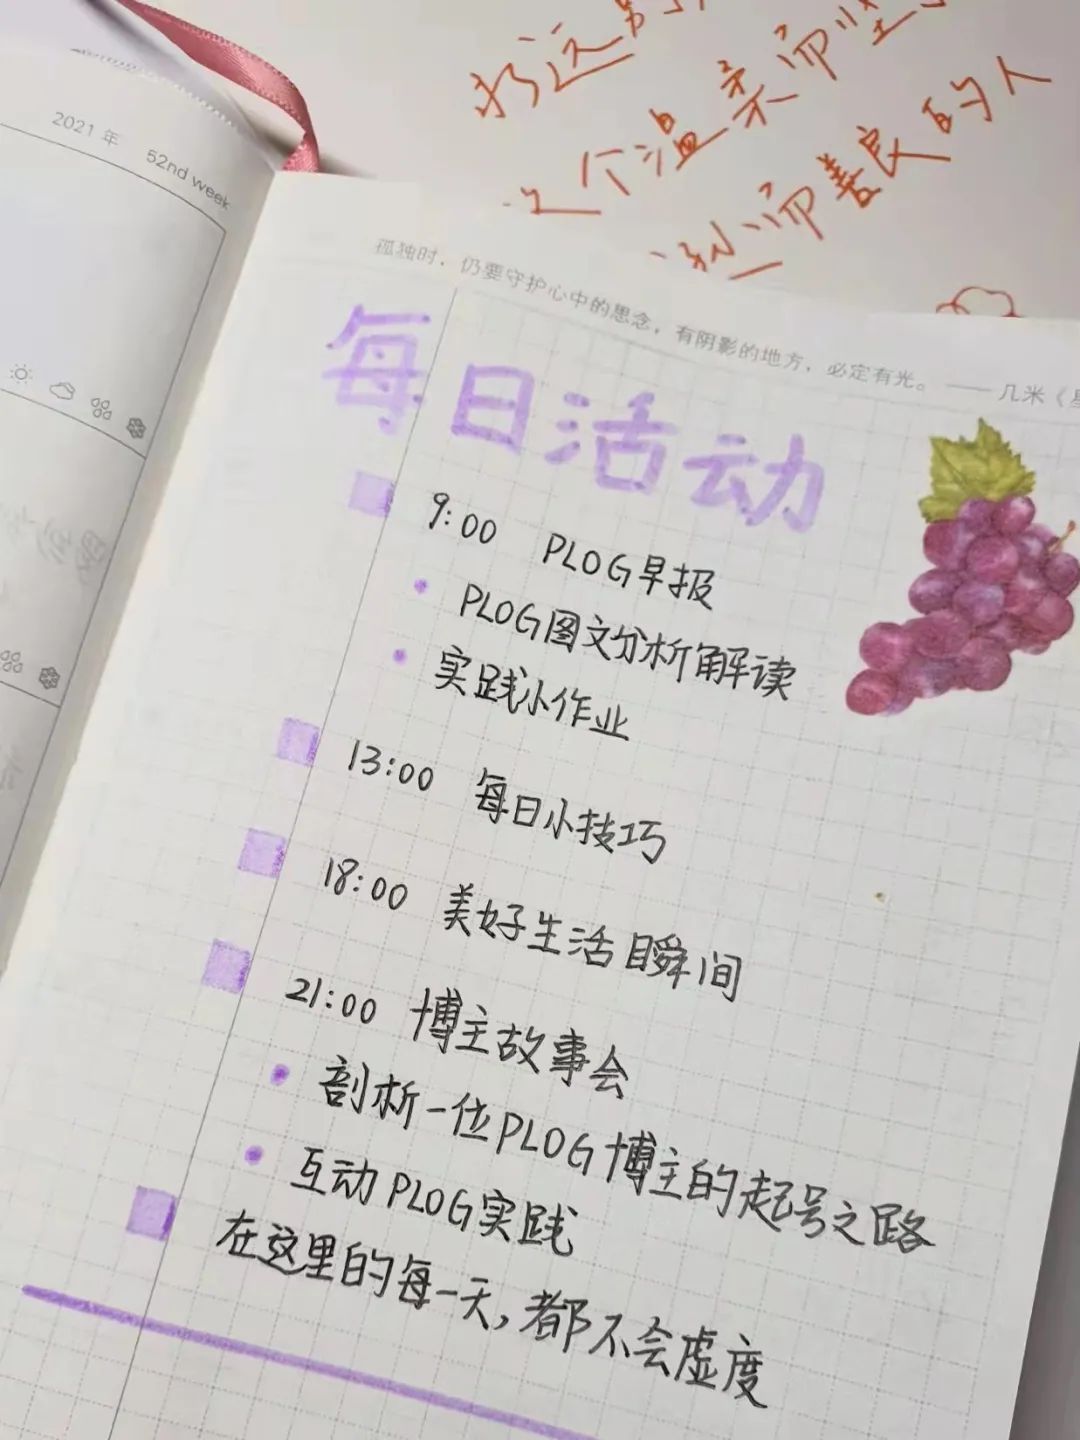 的人
而善良
个温柔而坚
2021年 52nd week
孤独时，仍要守护心中的思念，有阴影的地方，必定有光。 —— 几米《星
每日活动
9:00 PLOG早报
PLOG图文分析解读
实践小作业
13:00 每日小技巧
18:00 美好生活瞬间
21:00 博主故事会
剖析一位PLOG博主的起号之路
互动PLOG实践
在这里的每一天，都不会虚度